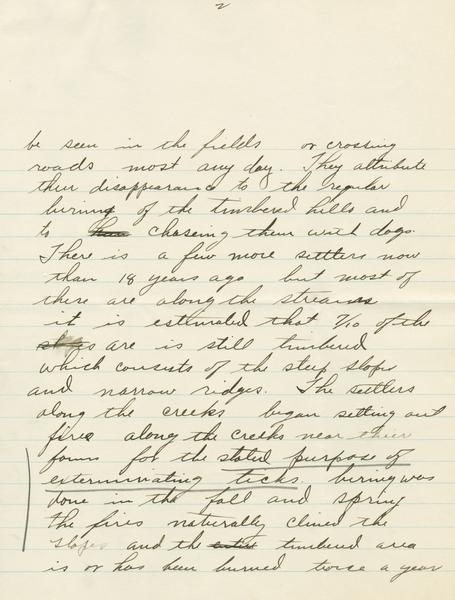 2
be seen in the fields or crossing
roads most any day. They attribute
their disappearance to the regular
burning of the timbered hills and
to chaseing them with dogs.
There is a few more settlers now
than 18 years ago but most of
there are along the streams
it is estimated that 7/10 of the
are is still timbered
which consists of the steep slopes
and narrow ridges. The settlers
along the creeks began setting out
fires along the creeks near their
farms for the stated purpose of
exterminating ticks. burning was
done in the fall and spring
the fires naturally climed the
slopes and the timbered area
is or has been burned twice a year